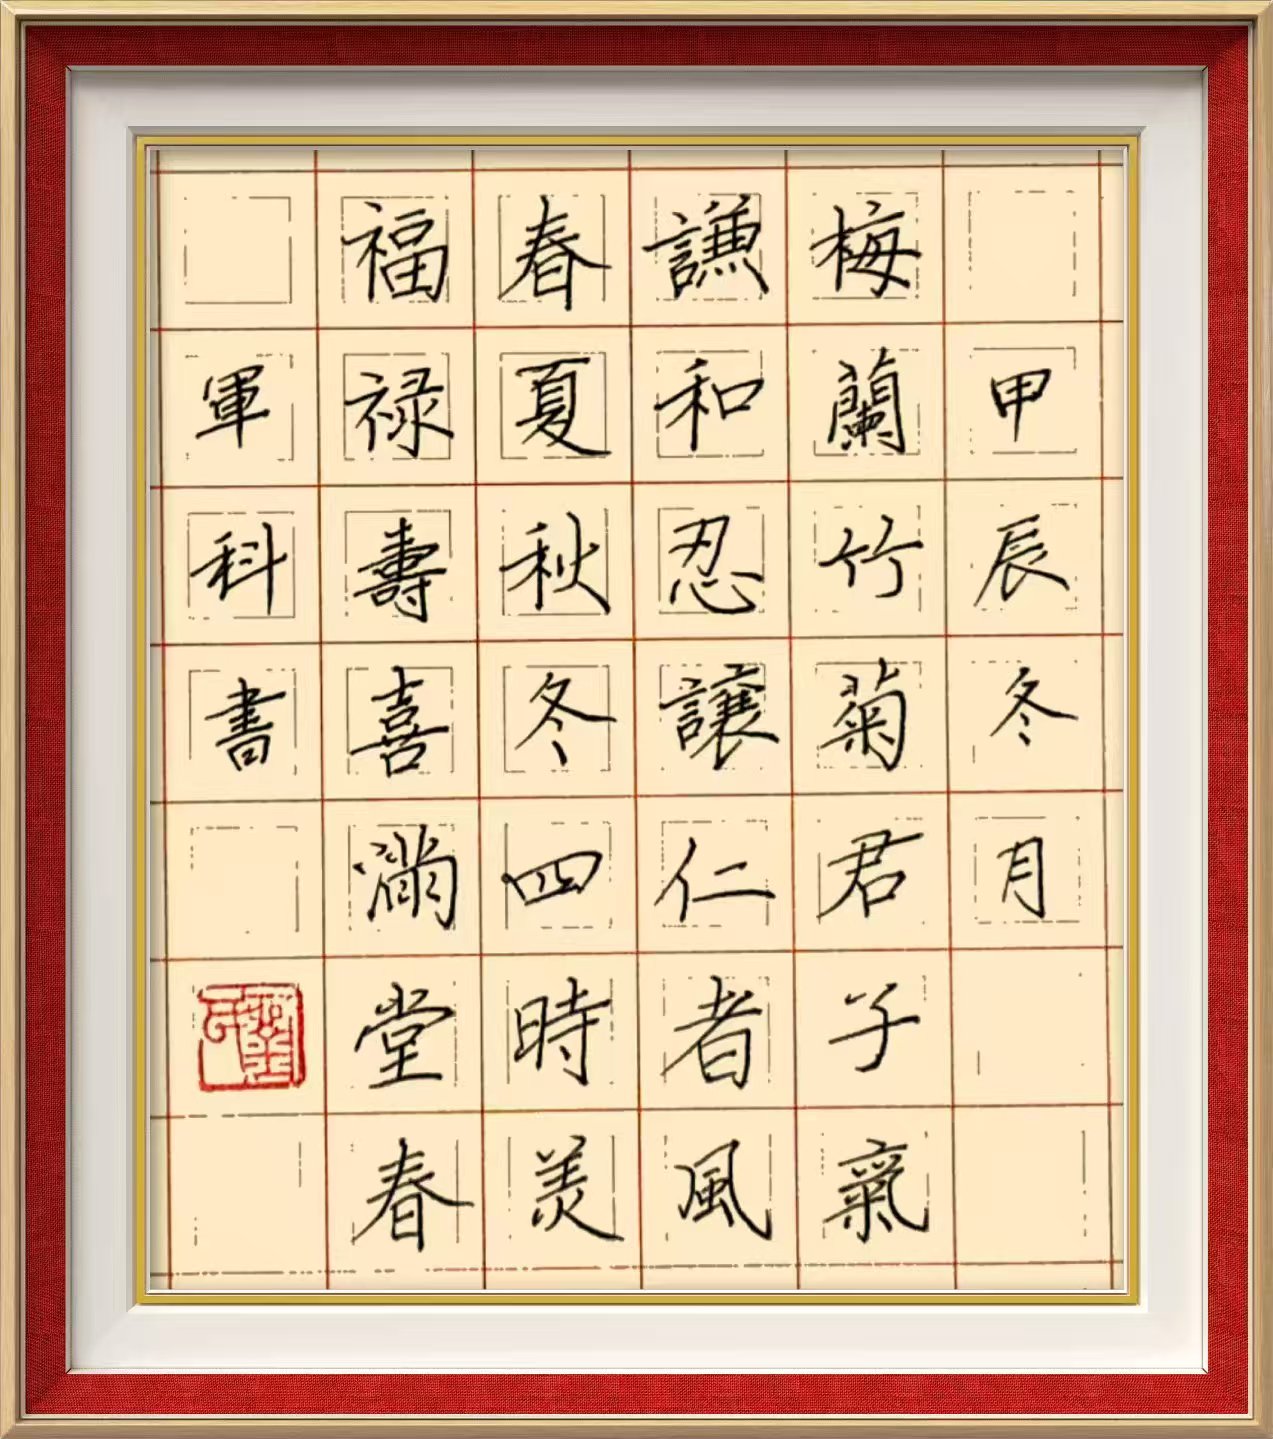 甲辰冬月
梅蘭竹菊君子氣
謙和忍讓仁者風
春夏秋冬四時美
福禄壽喜滿堂春
軍科書